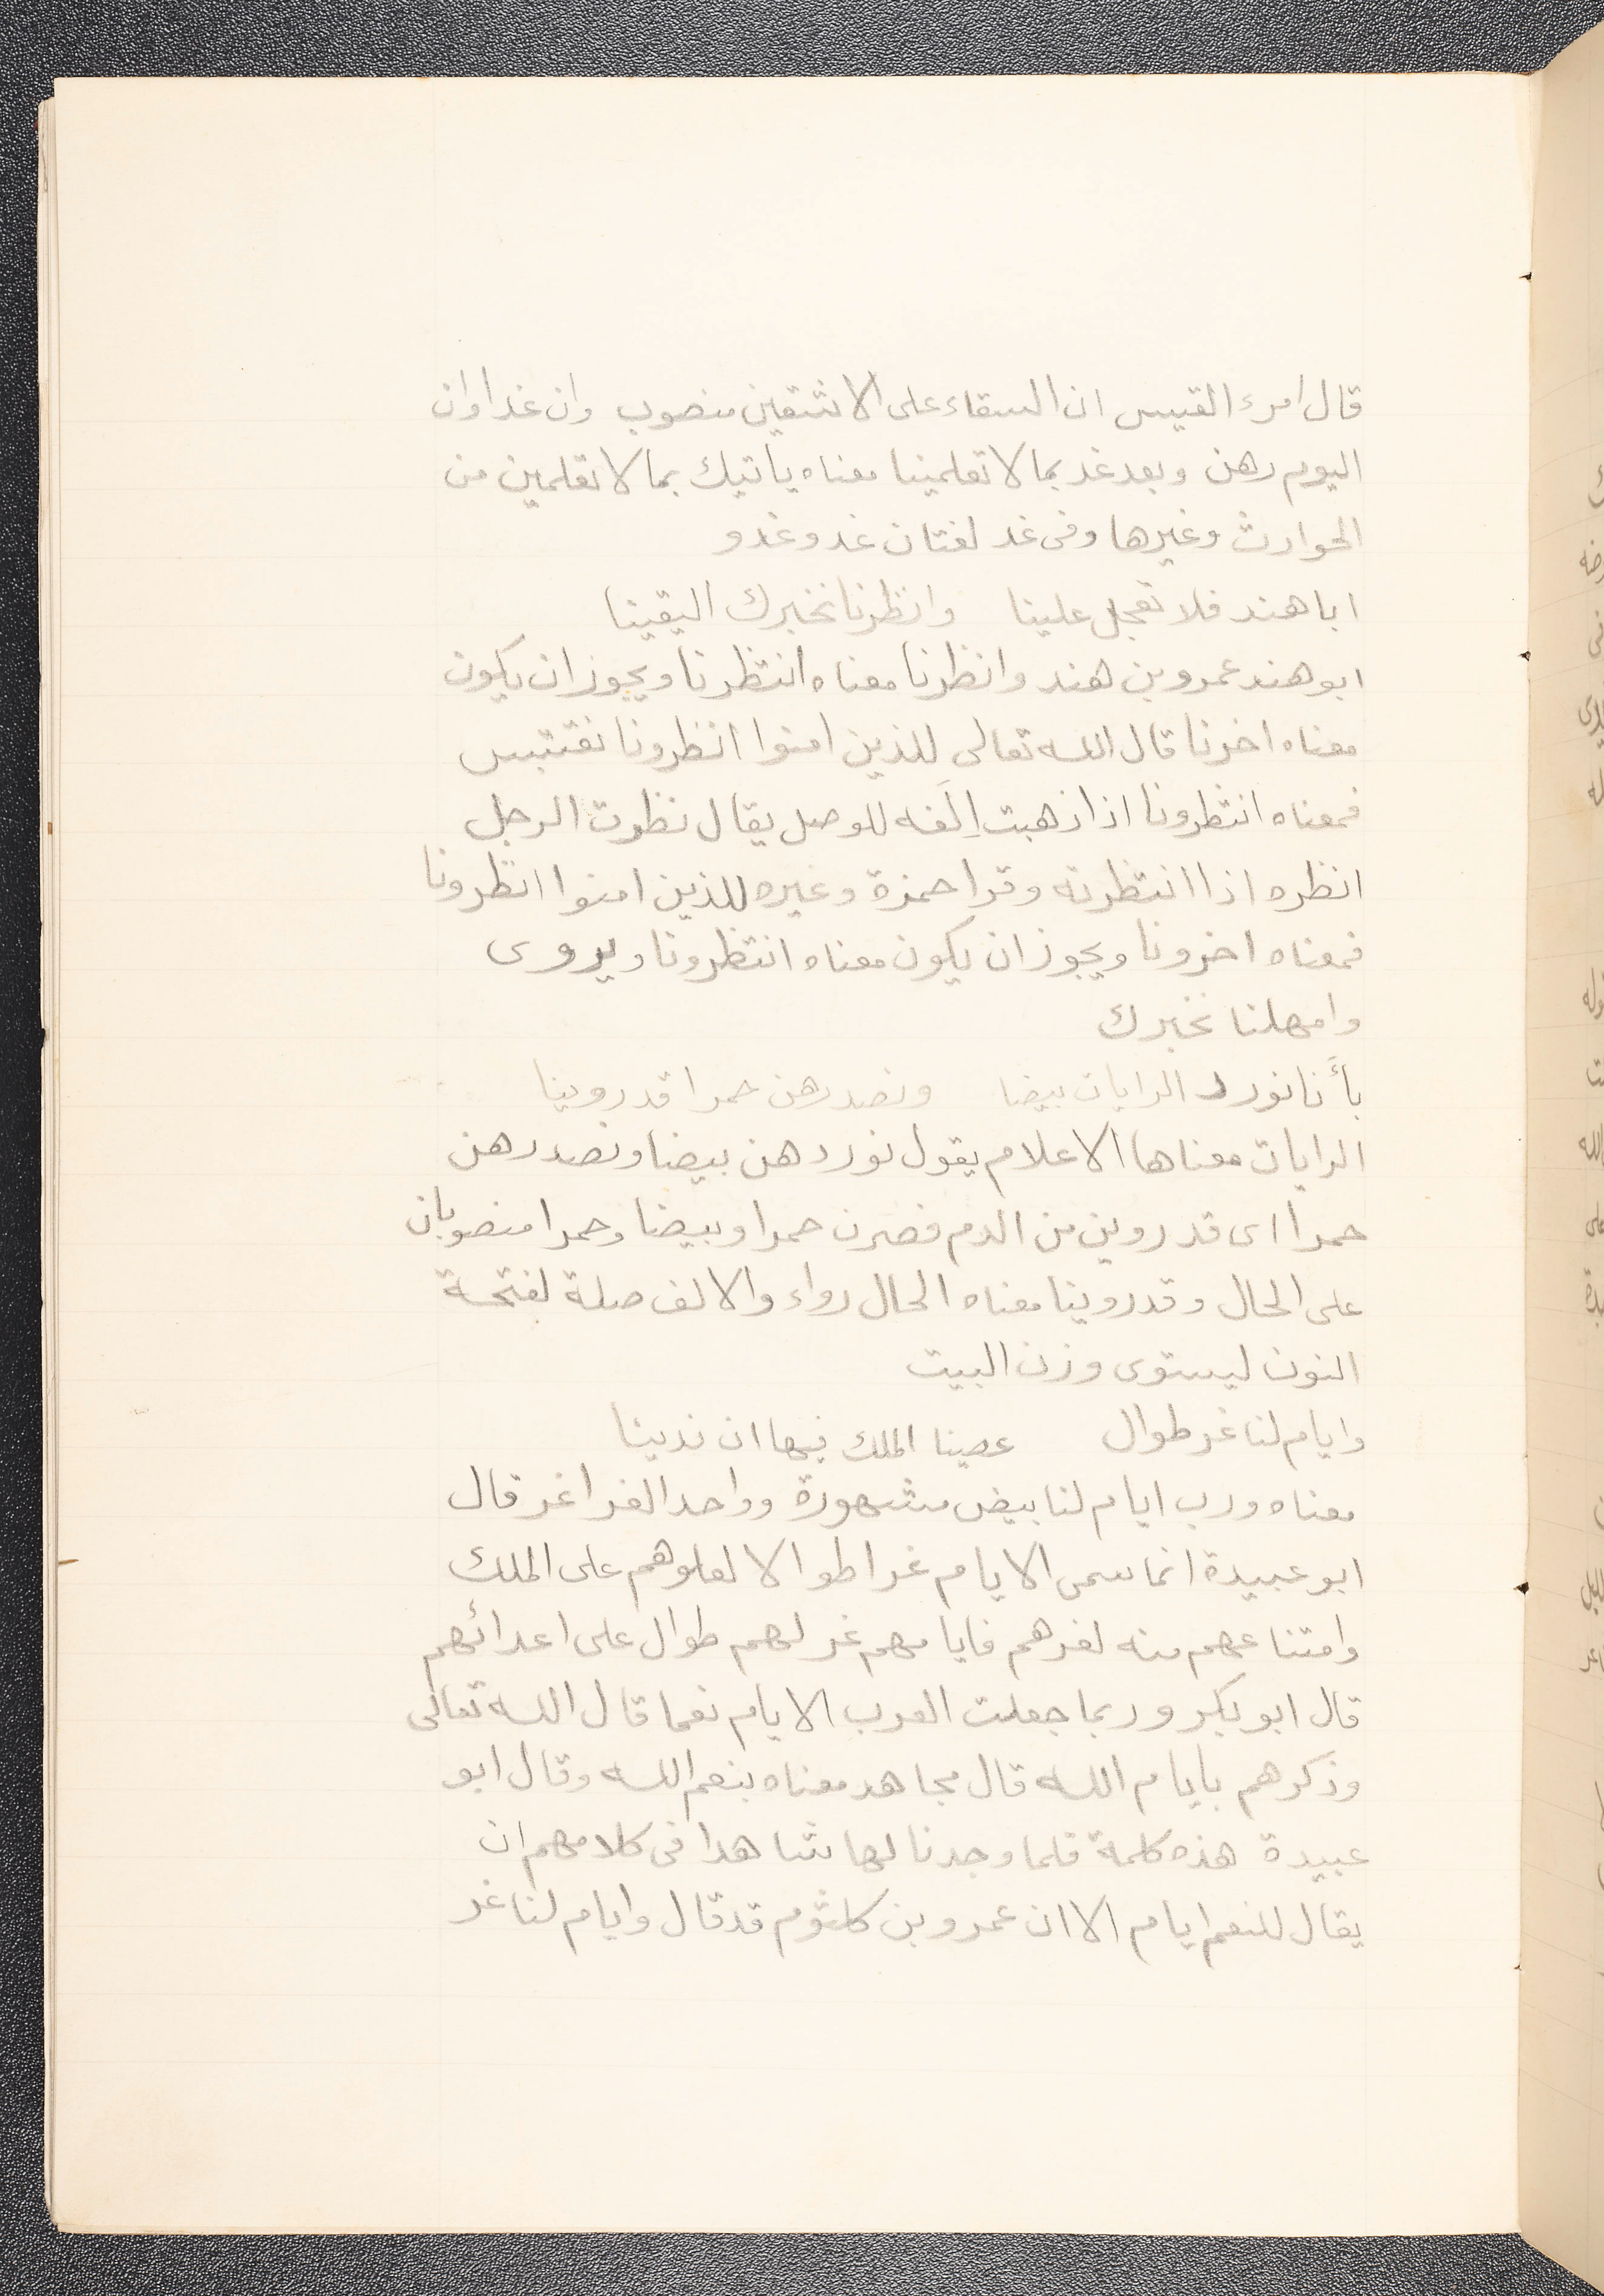 قال امرء القيس ان السقاء على الاشقين منصوب وان غدا وان
اليوم رهن وبعد غد بما لا تعلمينا معناه ياتيك بما لا تعلمين من
الحوادث وغيرها وفى غد لغتان غد وغدو
ابا هند فلا تعجل علينا وانظرنا نخبرك اليقينا
ابو هند عمرو بن هند وانظرنا معناه انتظرنا ويجوز ان يكون
معناه اخرنا قال الله تعالى للذين امنوا انظرونا نقتبس
فمعناه انتظرونا اذا ذهبت الَفه للوصل يقال نظرت الرجل
انظره اذا انتظرته وقرا حمزة وغيره للذين امنوا انظرونا
فمعناه اخرونا ويجوز ان يكون معناه انتظرونا ويروى
وامهلنا نخبرك
بأنا نورد الرايات بيضا ونصدرهن حمرا قد روينا
الرايات معناها الاعلام يقول نوردهن بيضا ونصدرهن
حمرا اى قد روين من الدم فصرن حمرا وبيضا وحمرا منصوبان
على الحال وقد روينا معناه الحال رواء والالف صلة لفتحة
النون ليستوى وزن البيت
وايام لنا غر طوال عصينا الملك فيها ان ندينا
معناه ورب ايام لنا بيض مشهورة وواحد الغر اغر قال
ابو عبيدة انما سمى الايام غرا طوالا لعلوهم على الملك
وامتناعهم منه لعزهم فايامهم غر لهم طوال على اعدائهم
قال ابو بكر وربما جعلت العرب الايام نعما قال الله تعالى
وذكرهم بايام الله قال مجاهد معناه بنعم الله وقال ابو
عبيدة هذه كلمة قلما وجدنا لها شاهدا فى كلامهم ان
يقال للنعم ايام الا ان عمرو بن كلثوم قد قال وايام لنا غر